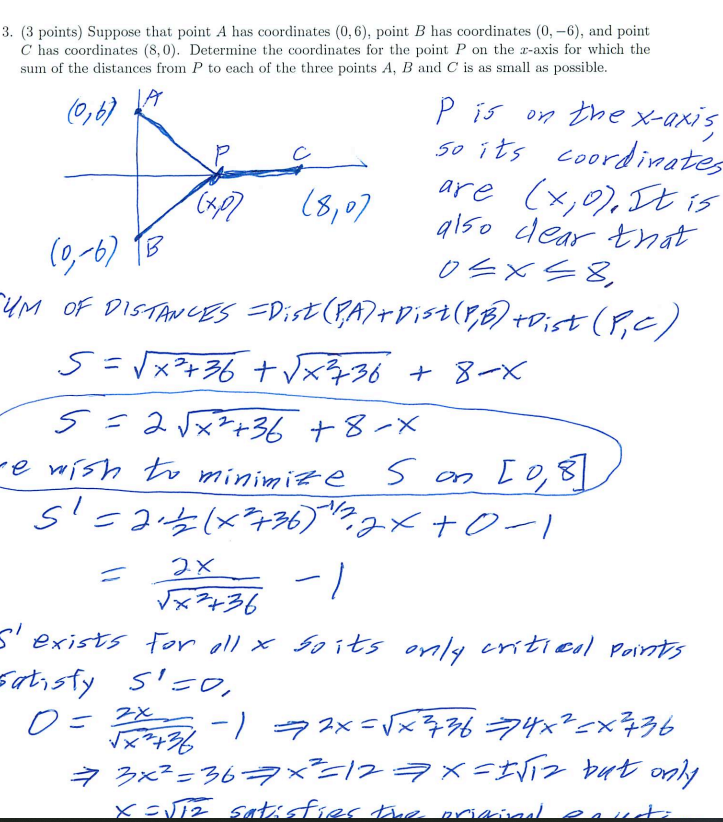 3. (3 points) Suppose that point A has coordinates (0, 6), point B has coordinates (0, −6), and point
C has coordinates (8, 0). Determine the coordinates for the point P on the x-axis for which the
sum of the distances from P to each of the three points A, B and C is as small as possible.
(0,6) A
P C
(x,0) (8,0)
(0,-6) B
P is on the x-axis,
so its coordinates
are (x,0). It is
also clear that
0 ≤ x ≤ 8.
SUM OF DISTANCES = Dist(P,A) + Dist(P,B) + Dist(P,C)
S = √(x²+36) + √(x²+36) + 8-x
S = 2√(x²+36) + 8-x
we wish to minimize S on [0,8]
S' = 2·½(x²+36)^(-1/2)·2x + 0 - 1
= 2x/√(x²+36) - 1
S' exists for all x so its only critical points
satisfy S'=0.
0 = 2x/√(x²+36) - 1 ⇒ 2x = √(x²+36) ⇒ 4x² = x²+36
⇒ 3x² = 36 ⇒ x² = 12 ⇒ x = ±√12 but only
x = √12 satisfies the original